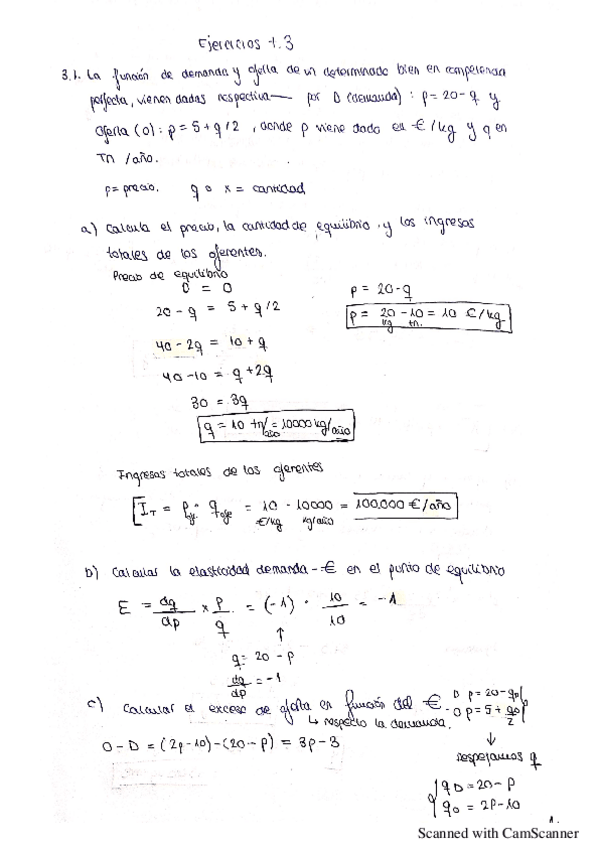 Ejercicios 1.3
3.1. La función de demanda y oferta de un determinado bien en competencia
perfecta, vienen dadas respectiva— por D (demanda) : p = 20 - q y
oferta (o) : p = 5 + q/2 , donde p viene dado en €/kg y q en
Tn /año.
p = precio, q o x = cantidad
a) Calcula el precio, la cantidad de equilibrio y los ingresos
totales de los oferentes.
Precio de equilibrio
D = O
20 - q = 5 + q/2
40 - 2q = 10 + q
40 - 10 = q + 2q
30 = 3q
q = 10 tn/año = 10000 kg/año
p = 20 - q
p = 20 - 10 = 10 €/kg
kg tn.
Ingresos totales de los oferentes
IT = p · q = 10 · 10000 = 100.000 €/año
€/kg kg/año
b) Calcular la elasticidad demanda - € en el punto de equilibrio
E = dq/dp x p/q = (-1) · 10/10 = -1
↑
q = 20 - p
dq/dp = -1
c) Calcular el exceso de oferta en función del €.
↳ respecto la demanda.
D p = 20 - qD
O p = 5 + qo/2
↓
Despejamos q
qD = 20 - p
qo = 2p - 10
O - D = (2p - 10) - (20 - p) = 3p - 3
1.
Scanned with CamScanner